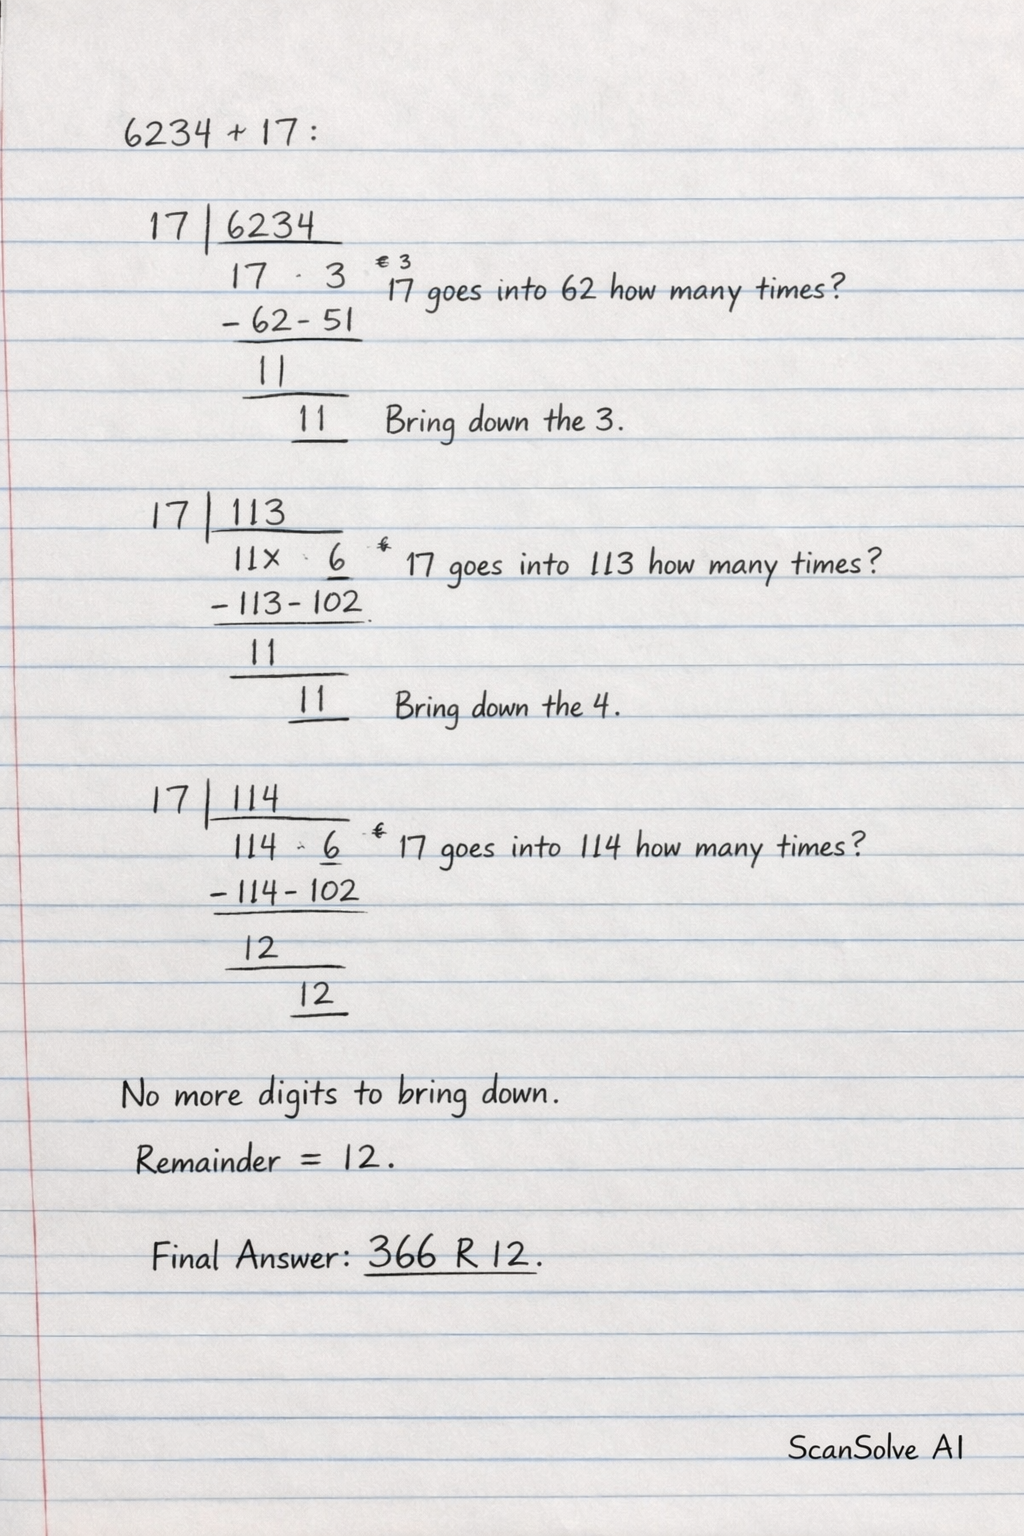 6234 + 17:
17 | 6234
17 · 3 € 3 17 goes into 62 how many times?
- 62 - 51
11
11 Bring down the 3.
17 | 113
11x · 6 17 goes into 113 how many times?
- 113 - 102
11
11 Bring down the 4.
17 | 114
114 · 6 17 goes into 114 how many times?
- 114 - 102
12
12
No more digits to bring down.
Remainder = 12.
Final Answer: 366 R 12.
ScanSolve AI